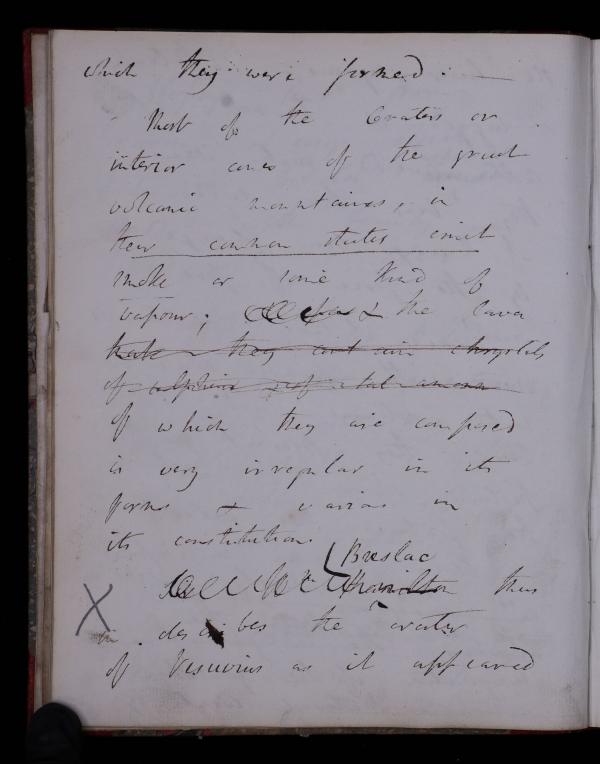 which they were formed. —
Most of the Craters or
interior cones of the great
volcanic mountains, in
their common states emit
smoke or some kind of
vapour; & the lava
that they contain chrystals
of
of which they are composed
is very irregular in its
forms & various in
its constitution.
Breslac
Hamilton thus
describes the crater
of Vesuvius as it appeared
X